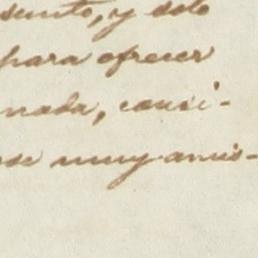 sunto, y solo
para ofrecer
nada, consi-
se muy amis-